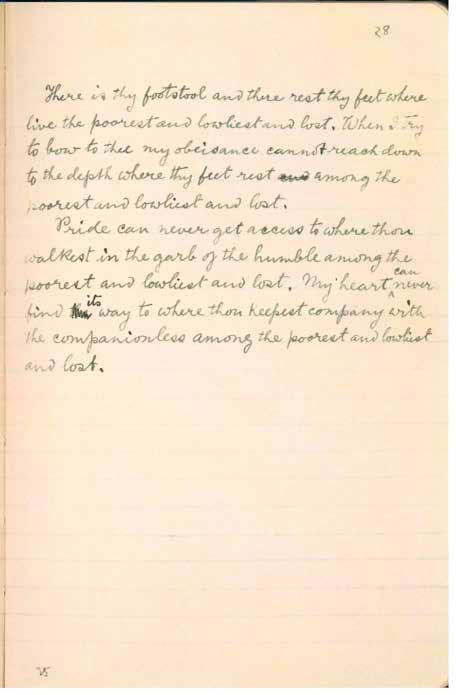 28
There is thy footstool and there rest thy feet where
live the poorest and lowliest and lost. When I try
to bow to thee my obeisance cannot reach down
to the depth where thy feet rest and among the
poorest and lowliest and lost.
Pride can never get access to where thou
walkest in the garb of the humble among the
poorest and lowliest and lost. My heart can never
find its way to where thou keepest company with
the companionless among the poorest and lowliest
and lost.
25